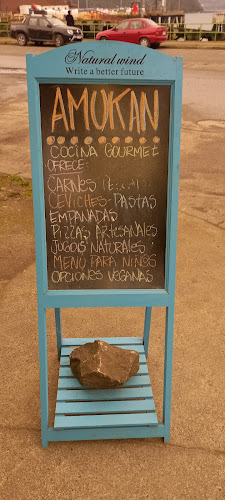 Natural wind
Write a better future
AMUKAN
COCINA GOURMET
OFRECE:
CARNES
CEVICHES - PASTAS
EMPANADAS
PIZZAS ARTESANALES
JUGOS NATURALES
MENU PARA NIÑOS
OPCIONES VEGANAS